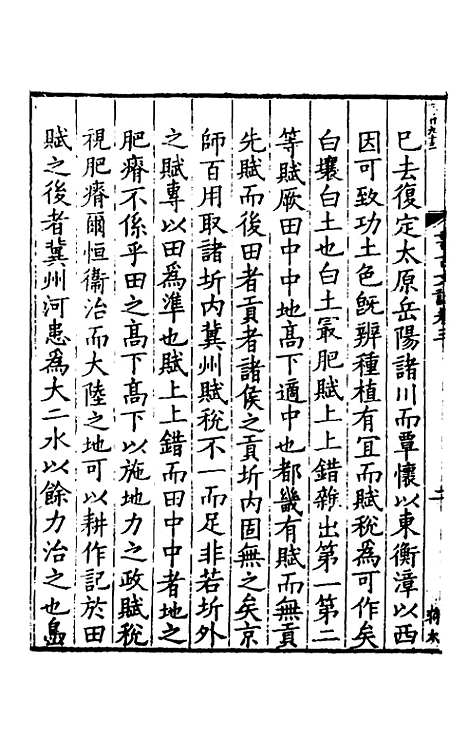 已去復定太原岳陽諸川而覃懷以東衡漳以西
因可致功土色既辨種植有宜而賦稅為可作矣
白壤白土也白土最肥賦上上錯雜出第一第二
等賦厥田中中地髙下適中也都畿有賦而無貢
先賦而後田者貢者諸侯之貢圻内固無之矣京
師百用取諸圻内冀州賦稅不一而足非若圻外
之賦專以田為準也賦上上錯而田中中者地之
肥瘠不係乎田之髙下髙下以施地力之政賦稅
視肥瘠爾恒衞治而大陸之地可以耕作記於田
賦之後者冀州河患為大二水以餘力治之也島